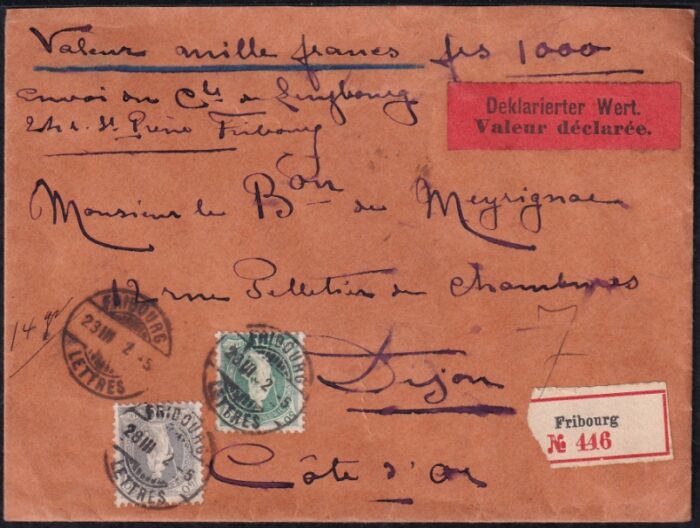 Valeur mille francs frs 1000
envoi du Cte de
Deklarierter Wert.
Valeur déclarée.
St Pierre Fribourg
Monsieur le Bon de Meyrignac
12 rue Pelletier de Chambures
14 gr
7
FRIBOURG
23 III 2 -5
LETTRES
FRIBOURG
23 III 2 -5
LETTRES
Dijon
Fribourg
№ 446
FRIBOURG
LETTRES
Côte d'or